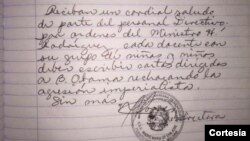 Reciban un cordial saludo
de parte del personal Directivo
por ordenes del Ministro H.
Rodríguez, cada docente con
su grupo de niñas o niños
deben escribir cartas dirigidas
a B. Obama rechazando la
agresión imperialista.
Sin más
Directora
Cortesía